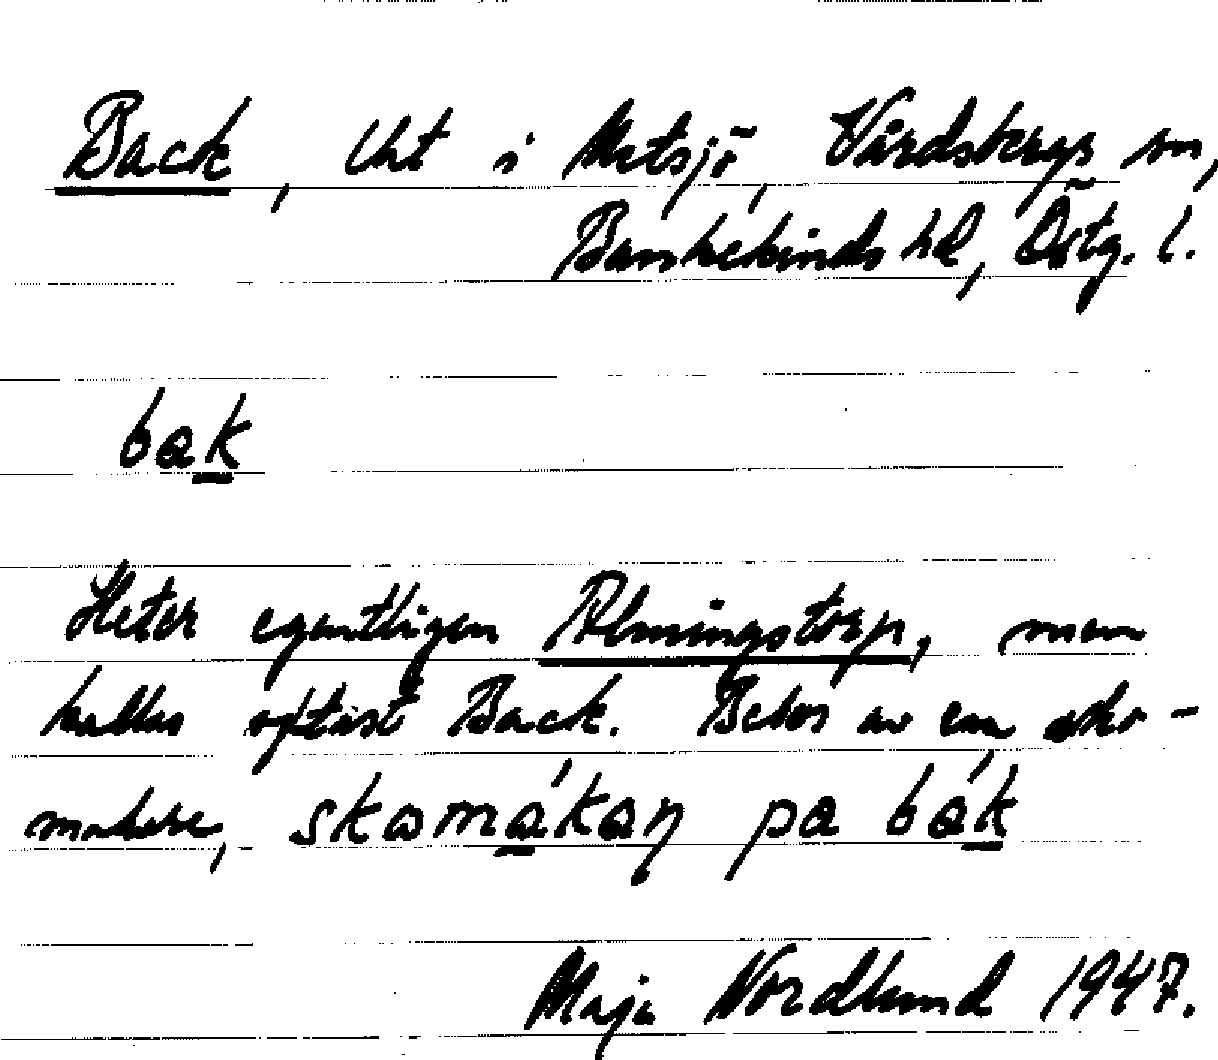 Back, lht i Motsjö, Vårdsbergs sn,
Bankekinds hd, Östg. l.
bak
Heter egentligen Almingstorp, men
kallas oftast Back. Bebos av en sko-
makare, skomákan pa bák
Maja Nordlund 1947.